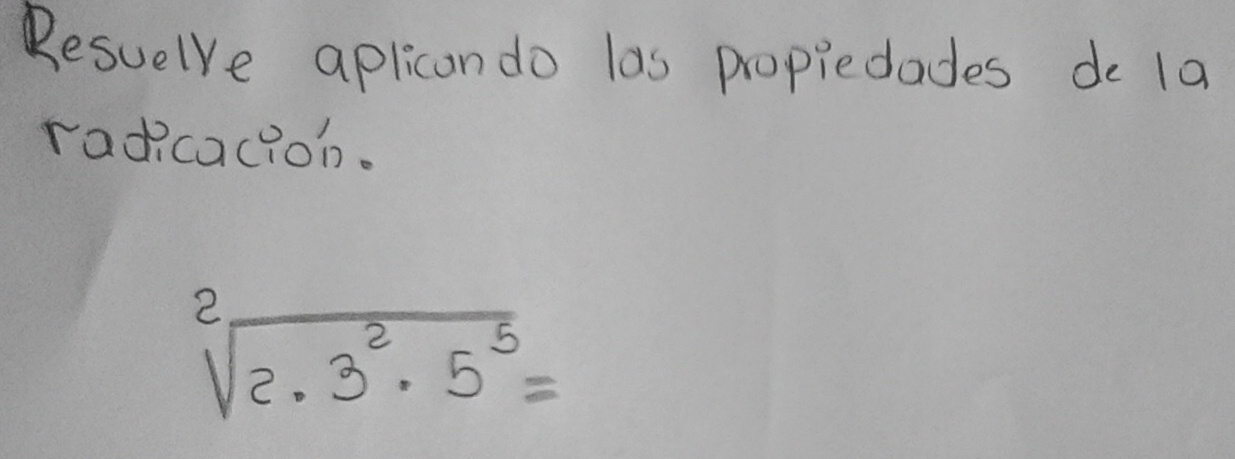 Resuelve aplicando las propiedades de la
radicación.
²√2.3².5⁵=